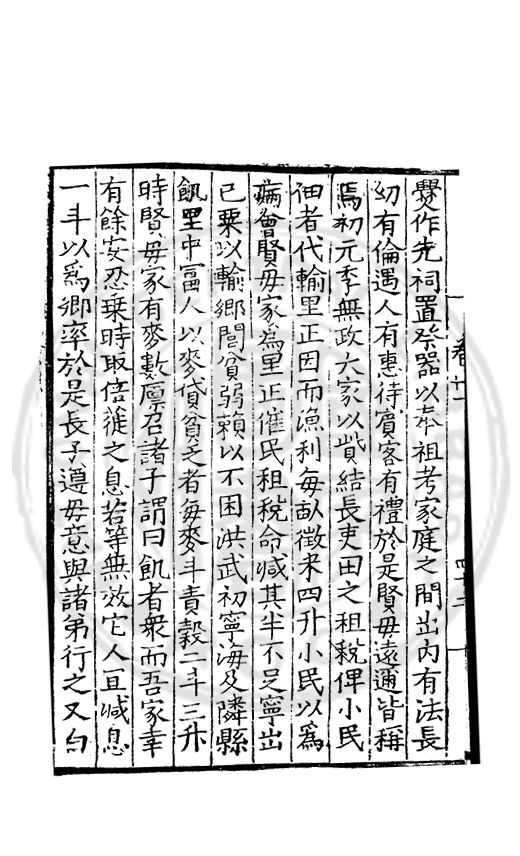 爨作先祠置祭器以奉祖考家庭之間出內有法長
幼有倫遇人有惠待賓客有禮於是賢毋遠邇皆稱
焉初元季無政大家以貲結長吏田之租稅俾小民
佃者代輸里正因而漁利每畝徵米四升小民以爲
病會賢毋家爲里正催民租稅命減其半不足寧出
已粟以輸鄉閭貧弱賴以不困洪武初寧海及隣縣
飢里中富人以麥貸貧乏者每麥斗責穀二斗三升
時賢毋家有麥數廪召諸子謂曰飢者衆而吾家幸
有餘安忍乗時取倍蓰之息若等無效它人亘减息
一斗以爲鄉率於是長子遵毋意與諸弟行之又白
卷十一
四十三